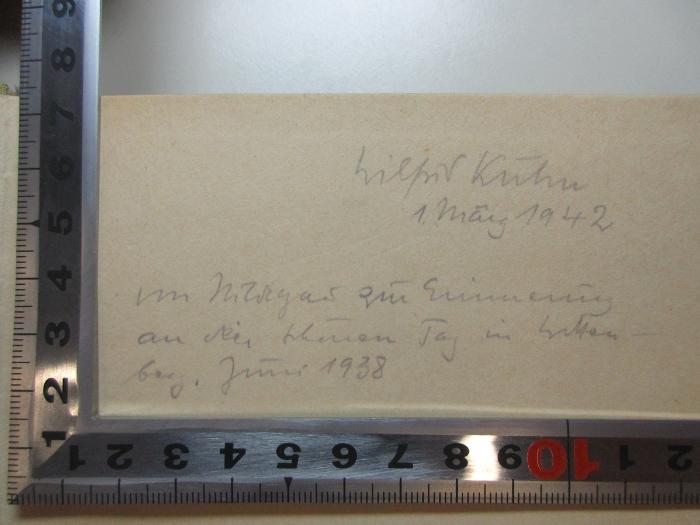 Wilfrid Kühn
1. März 1942
von Hildegard zur Erinnerung
an den schönen Tag in Witten-
berg, Juni 1938
9
8
7
6
5
4
3
2
1
1 2 3 4 5 6 7 8 9 10 1 2